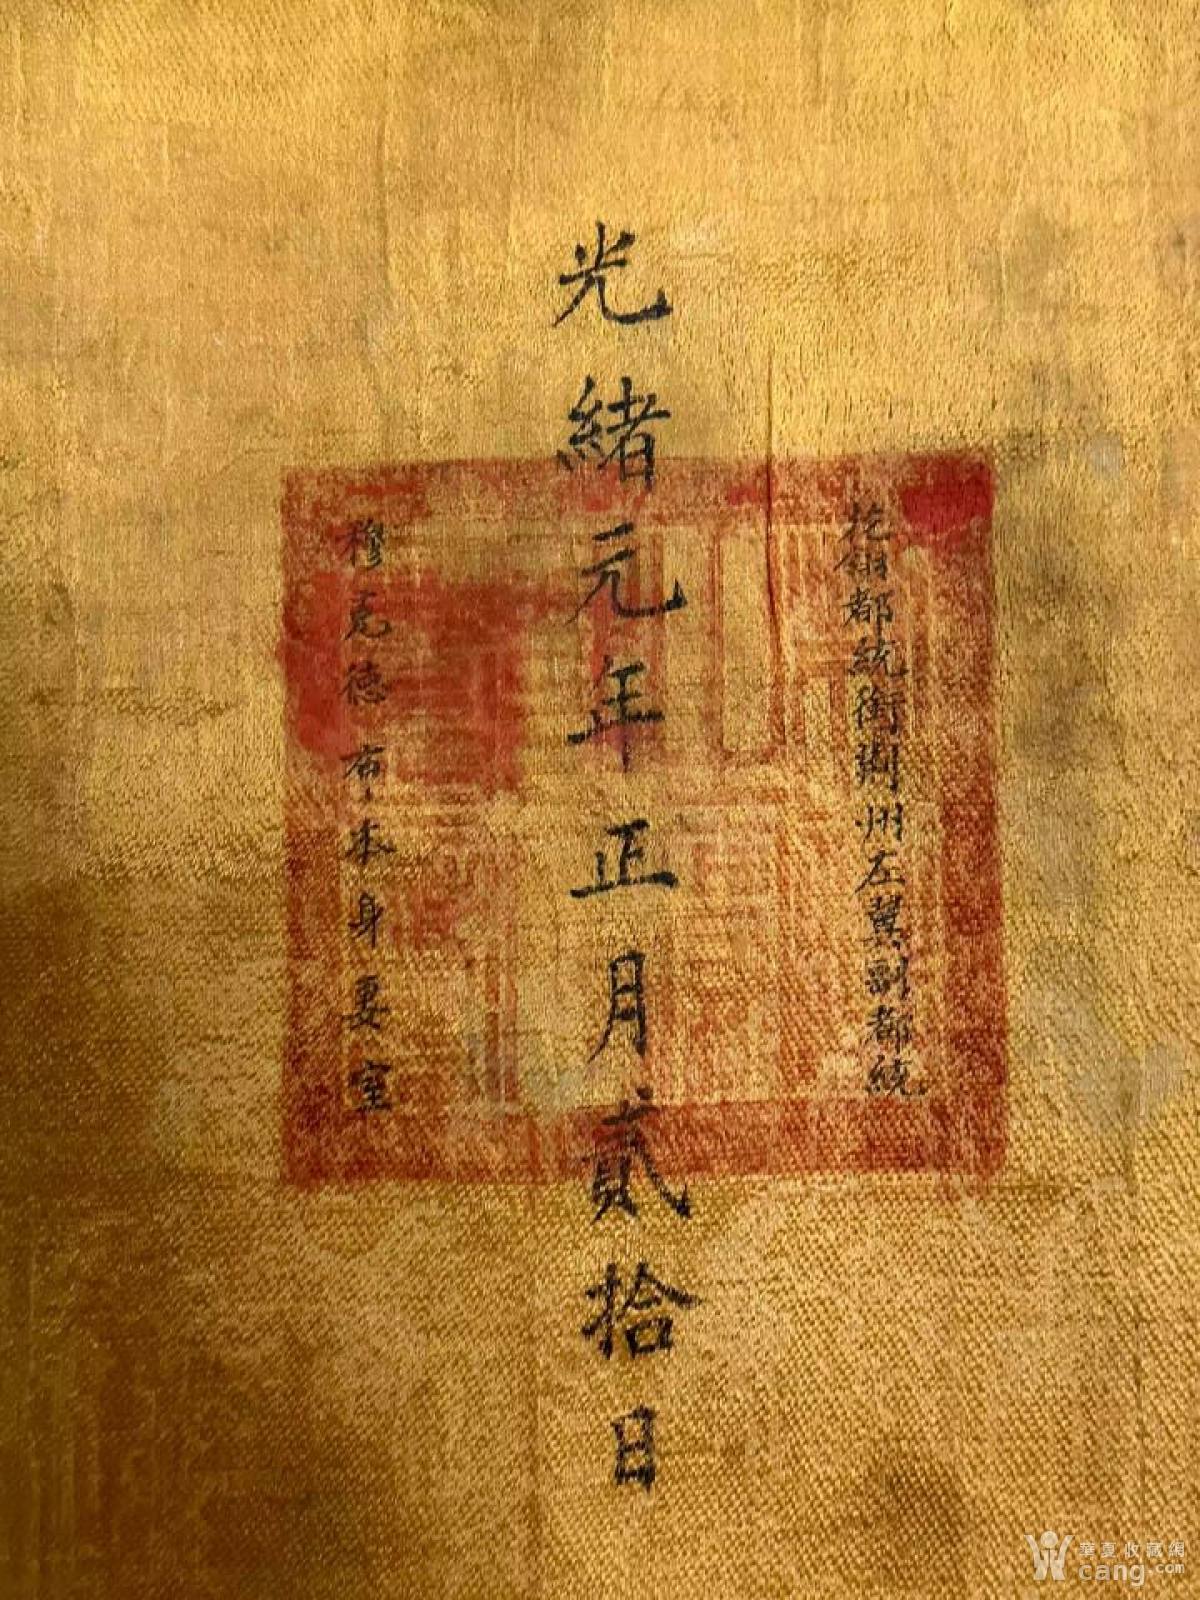 花翎都統銜荊州左翼副都統
光緒元年正月貳拾日
穆克德布本身妻室
華夏收藏網
cang.com